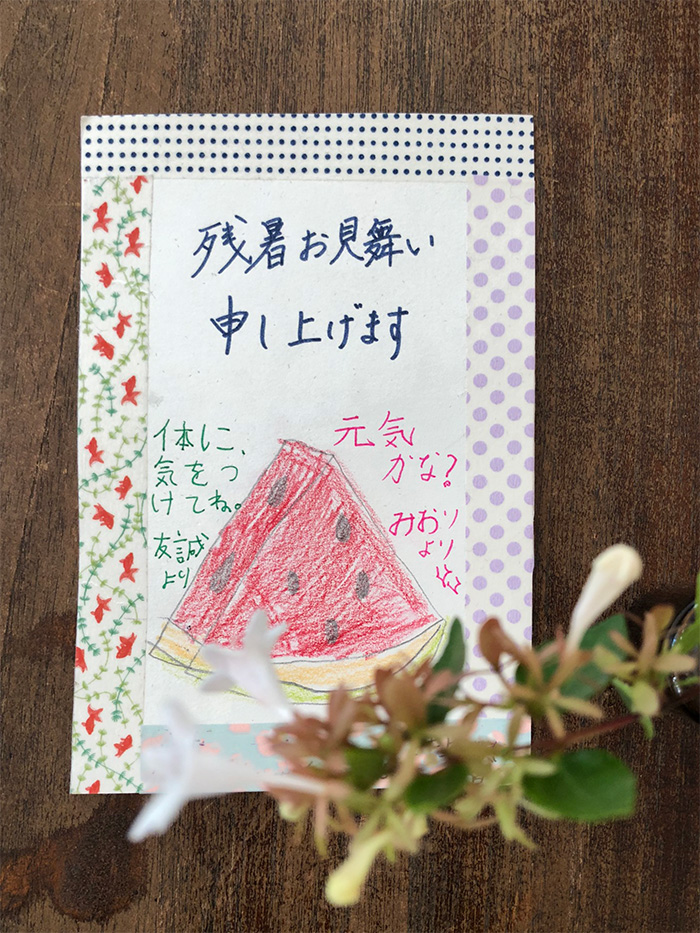 残暑お見舞い
申し上げます
体に、
気をつ
けてね。
友誠
より
元気
かな?
みおり
より